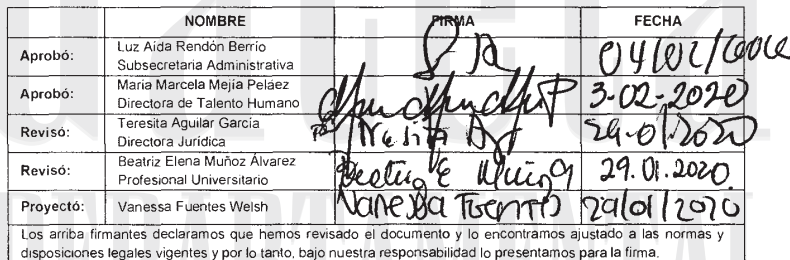 NOMBRE FIRMA FECHA
Aprobó: Luz Aida Rendón Berrío
Subsecretaria Administrativa
Aprobó: Maria Marcela Mejía Peláez
Directora de Talento Humano 3-02-2020
Revisó: Teresita Aguilar García
Directora Jurídica 29-01-2020
Revisó: Beatriz Elena Muñoz Álvarez
Profesional Universitario Beatriz E Muñoz A 29.01.2020
Proyectó: Vanessa Fuentes Welsh Vanessa Fuentes 29/01/2020
Los arriba firmantes declaramos que hemos revisado el documento y lo encontramos ajustado a las normas y
disposiciones legales vigentes y por lo tanto, bajo nuestra responsabilidad lo presentamos para la firma.